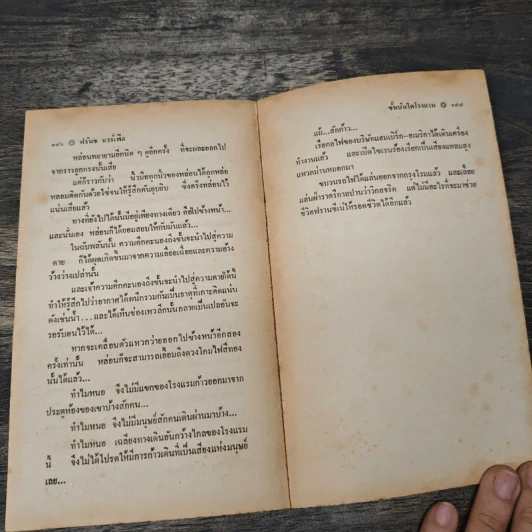 ๑๔๖ ๏ ฟรันซ แวร์เฟิล
หล่อนพยายามอีกนิด ๆ ดูอีกครั้ง ที่จะผละออกไป
จากราวลูกกรงนั้นเสีย
แต่ก็ราวกับว่า นิ้วมือทุกนิ้วของหล่อนได้ถูกหล่อ
หลอมติดกันด้วยโซ่จนไร้รู้สึกคืบคูบิบ ซึ่งตรึงหล่อนไว้
แน่นเสียแล้ว
ทางที่ยังไปได้นั้นมีอยู่เพียงทางเดียว คือไปข้างหน้า...
และนั่นเอง หล่อนก็ได้ยอมสยบให้กับมันแล้ว...
ในฉับพลันนั้น ความคึกคะนองถึงขั้นจะนำไปสู่ความ
ตาย ก็ได้ผุดเกิดขึ้นมาจากความเอื่อยเฉื่อยและความอ้าง
ว้างว่างเปล่านั้น
และเจ้าความคึกคะนองถึงขั้นจะนำไปสู่ความตายได้นี้
ทำให้รู้สึกไปว่าอากาศได้ผนึกรวมกันเป็นธาตุที่เกาะติดแน่น
ดังเช่นน้ำ...และได้เห็นช่องเหวลึกนั้นกลายเป็นเปลอันจะ
รอรับตนไว้ได้...
หากจะเคลื่อนตัวแหวกว่ายออกไปข้างหน้าอีกสอง
ครั้งเท่านั้น หล่อนก็จะสามารถเอื้อมถึงดวงโคมไฟสีทอง
นั้นได้แล้ว...
ทำไมหนอ จึงไม่มีแขกของโรงแรมก้าวออกมาจาก
ประตูห้องของเขาบ้างสักคน...
ทำไมหนอ จึงไม่มีมนุษย์สักคนเดินผ่านมาบ้าง...
ทำไมหนอ เฉลียงทางเดินอันกว้างไกลของโรงแรม
นี้ จึงไม่ได้โปรดให้มีการก้าวเดินที่เป็นเสียงแห่งมนุษย์
เลย...
ขั้นบันไดโรงแรม ๏ ๑๔๗
แม้...สักก้าว...
เรือกลไฟของบริษัทแฮมเบิร์ก-อเมริกาได้เดินเครื่อง
ทำงานแล้ว และเปิดไซเรนร้องเรือกเป็นเสียงแหลมสูง
แหวกม่านหมอกมา
ขบวนรถไฟได้แล่นออกจากกรุงโรมแล้ว และเลื้อย
แล่นฝ่าราตรีกาลปานว่าวิกลจริต แต่ไม่มีอะไรจะมาช่วย
ชีวิตฟรานซีเน่ให้รอดชีวิตได้อีกแล้ว